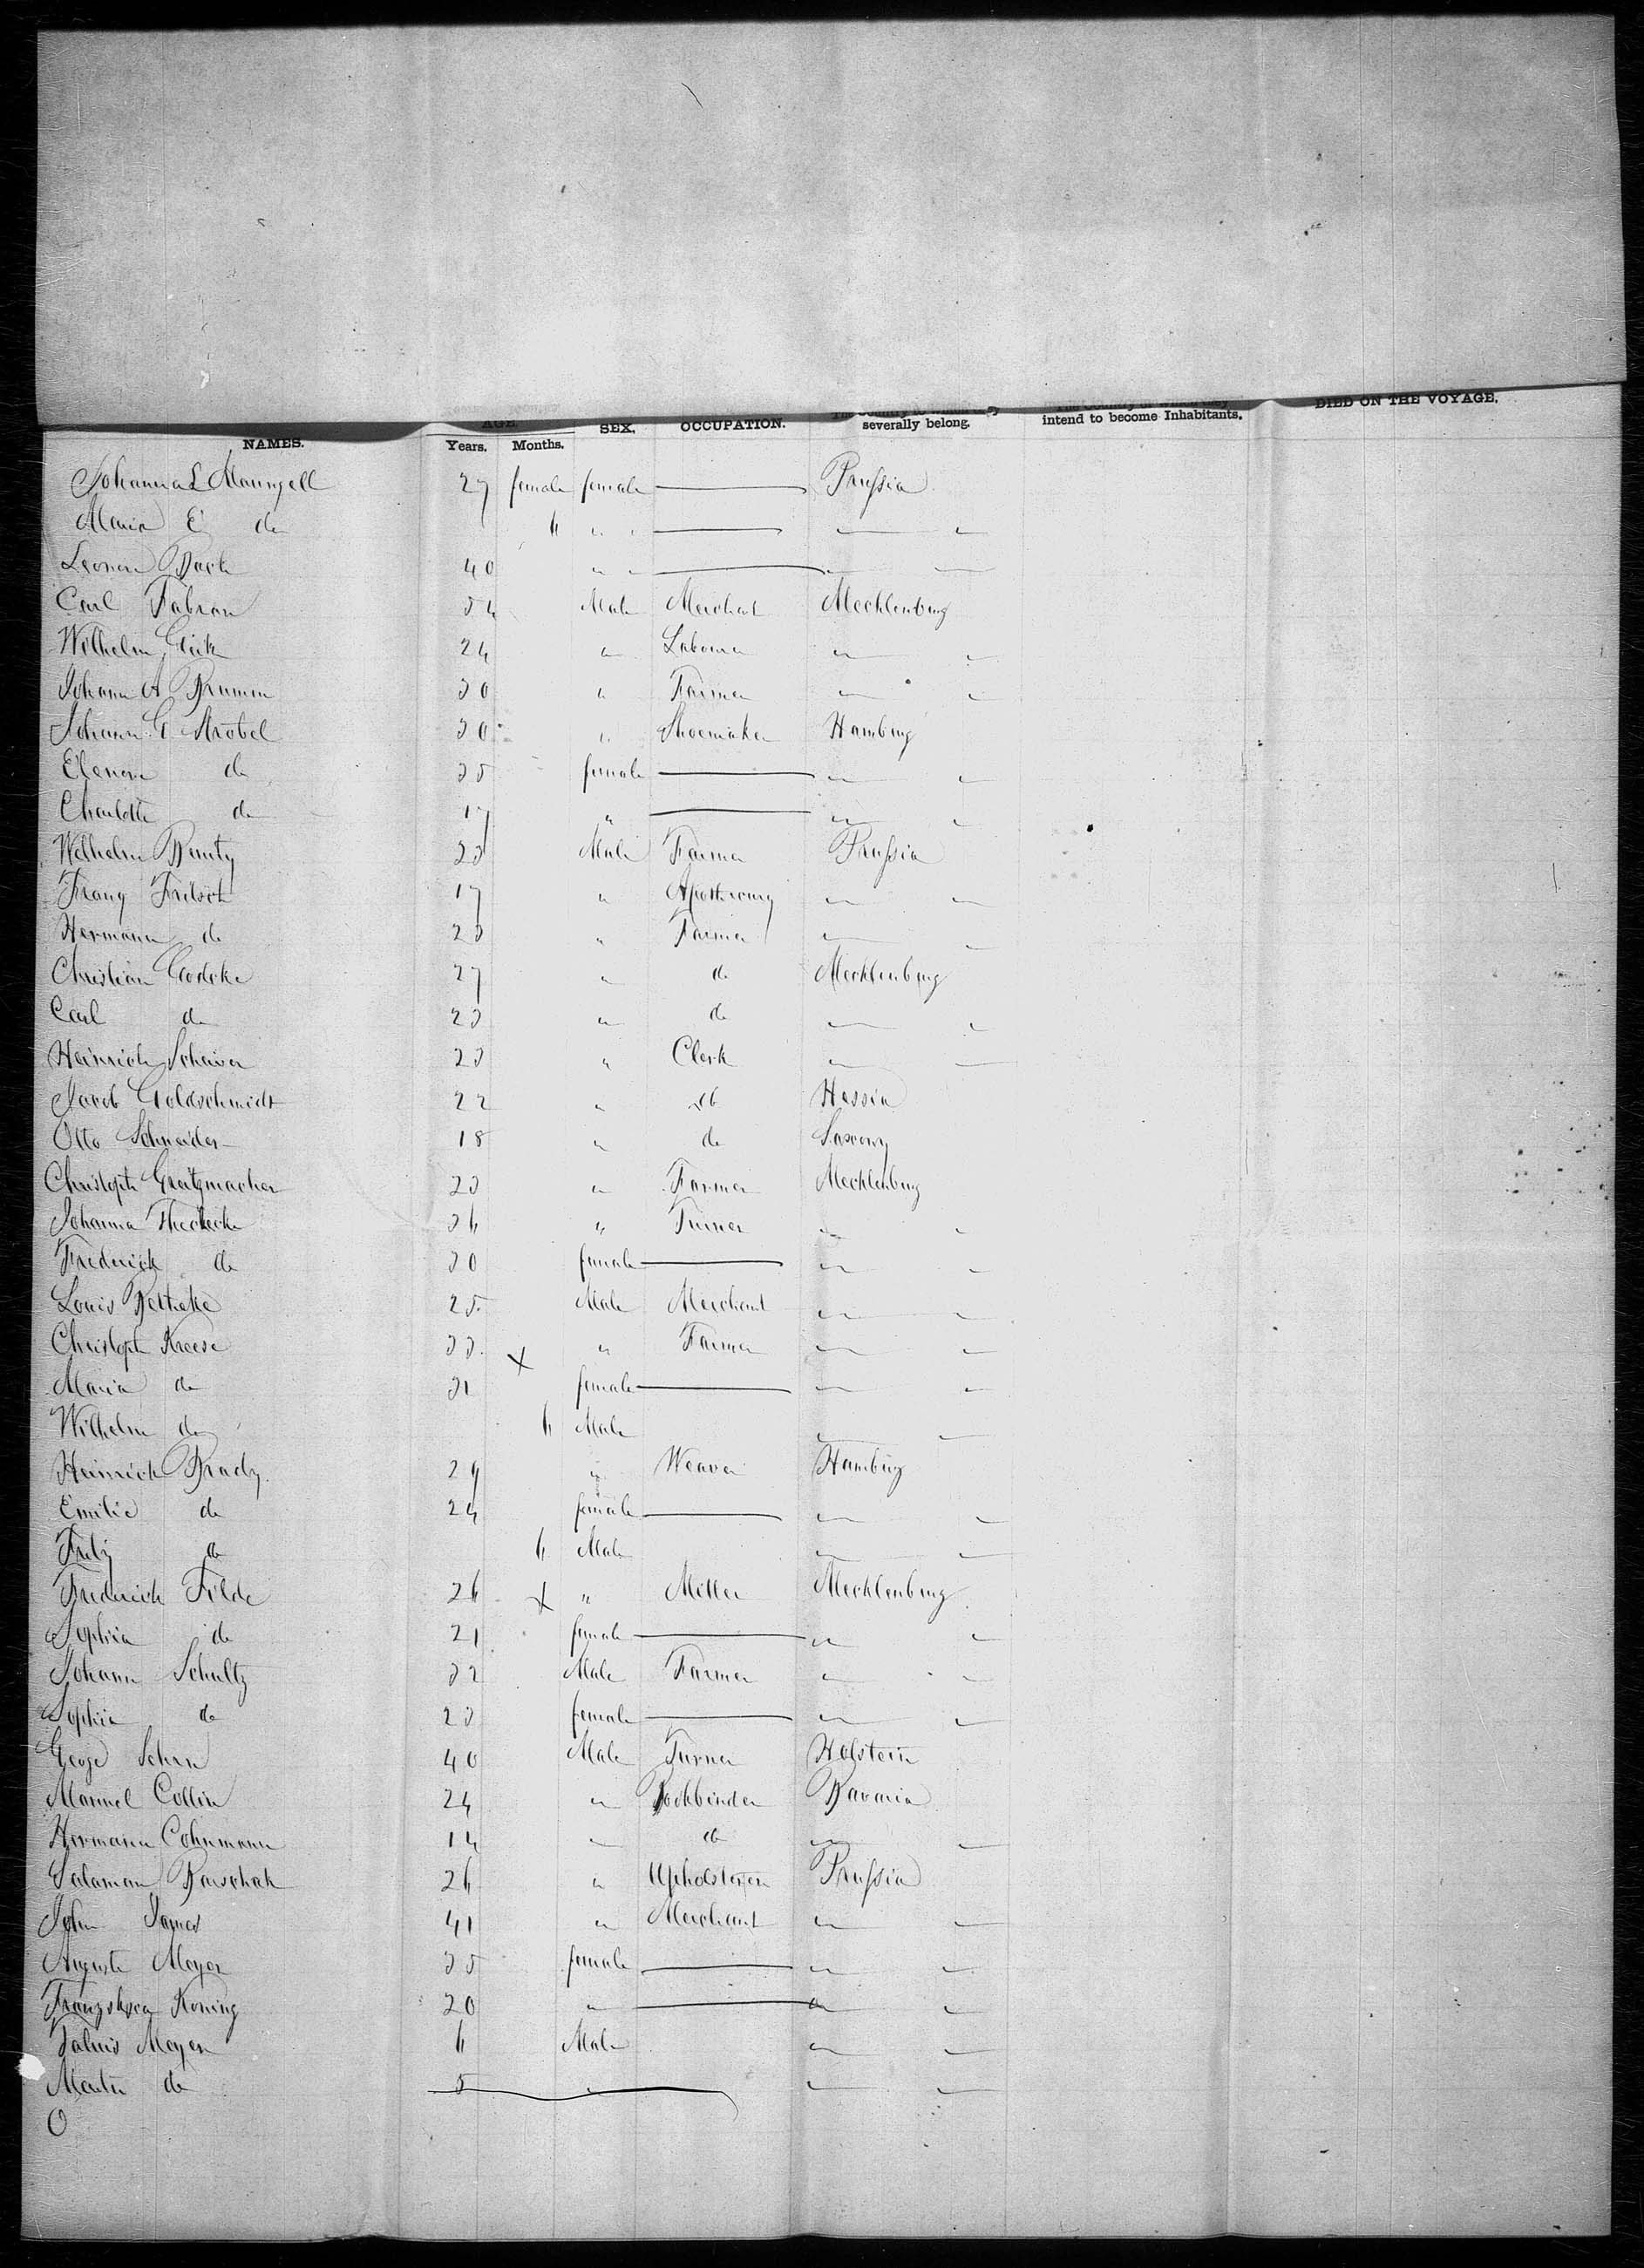 AGE. SEX. OCCUPATION. severally belong. intend to become Inhabitants. DIED ON THE VOYAGE.
NAMES. Years. Months.
Johanna L 27 female female Prussia
Maria E do 6 " "
40 " "
Carl Male Merchant Mecklenburg
Wilhelm 24 " Labourer " "
Johann A 30 " Farmer " "
Johann G Strobel 30 " Shoemaker Hamburg
Elenore do 35 female " "
Charlotte do 17 " " "
Wilhelm 33 Male Farmer Prussia
Franz Fritsch 17 " Apothecary " "
Hermann do 23 " Farmer " "
Christian 27 " do Mecklenburg
Carl do 23 " do " "
Heinrich 23 " Clerk " "
Jacob Goldschmidt 22 " do Hessia
Otto Schneider 18 " do Saxony
Christoph 23 " Farmer Mecklenburg
Johanna 36 " Turner " "
Frederick do 30 female " "
Louis 25 Male Merchant " "
Christoph Kreese 33 X " Farmer " "
Maria do 31 female " "
Wilhelm do 6 Male " "
Heinrich 29 " Weaver Hamburg
Emilie do 24 female " "
Fritz do 6 Male " "
Frederick Filde 26 X " Miller Mecklenburg
Sophia do 21 female " "
Johann Schultz 32 Male Farmer " "
Sophia do 23 female " "
George 40 Male Turner Holstein
Manuel Collin 24 " Bookbinder Bavaria
Hermann Cohnmann 14 " do " "
Salaman 26 " Upholsterer Prussia
John James 41 " Merchant " "
Auguste Meyer 35 female " "
Koning 20 " " "
Meyer 6 Male " "
do 5 " " "